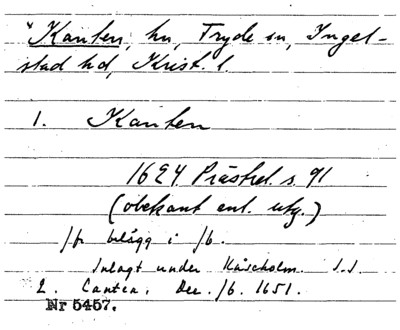 *Kanten, hn, Tryde sn, Ingel-
stad hd, Krist. l.
1. Kanten
1624 Prästrel. s. 91
(obekant enl. utg.)
fr belägg i jb.
Inlagt under Kåseholm.
2. Canten, Dec. jb. 1651.
Nr 5457.